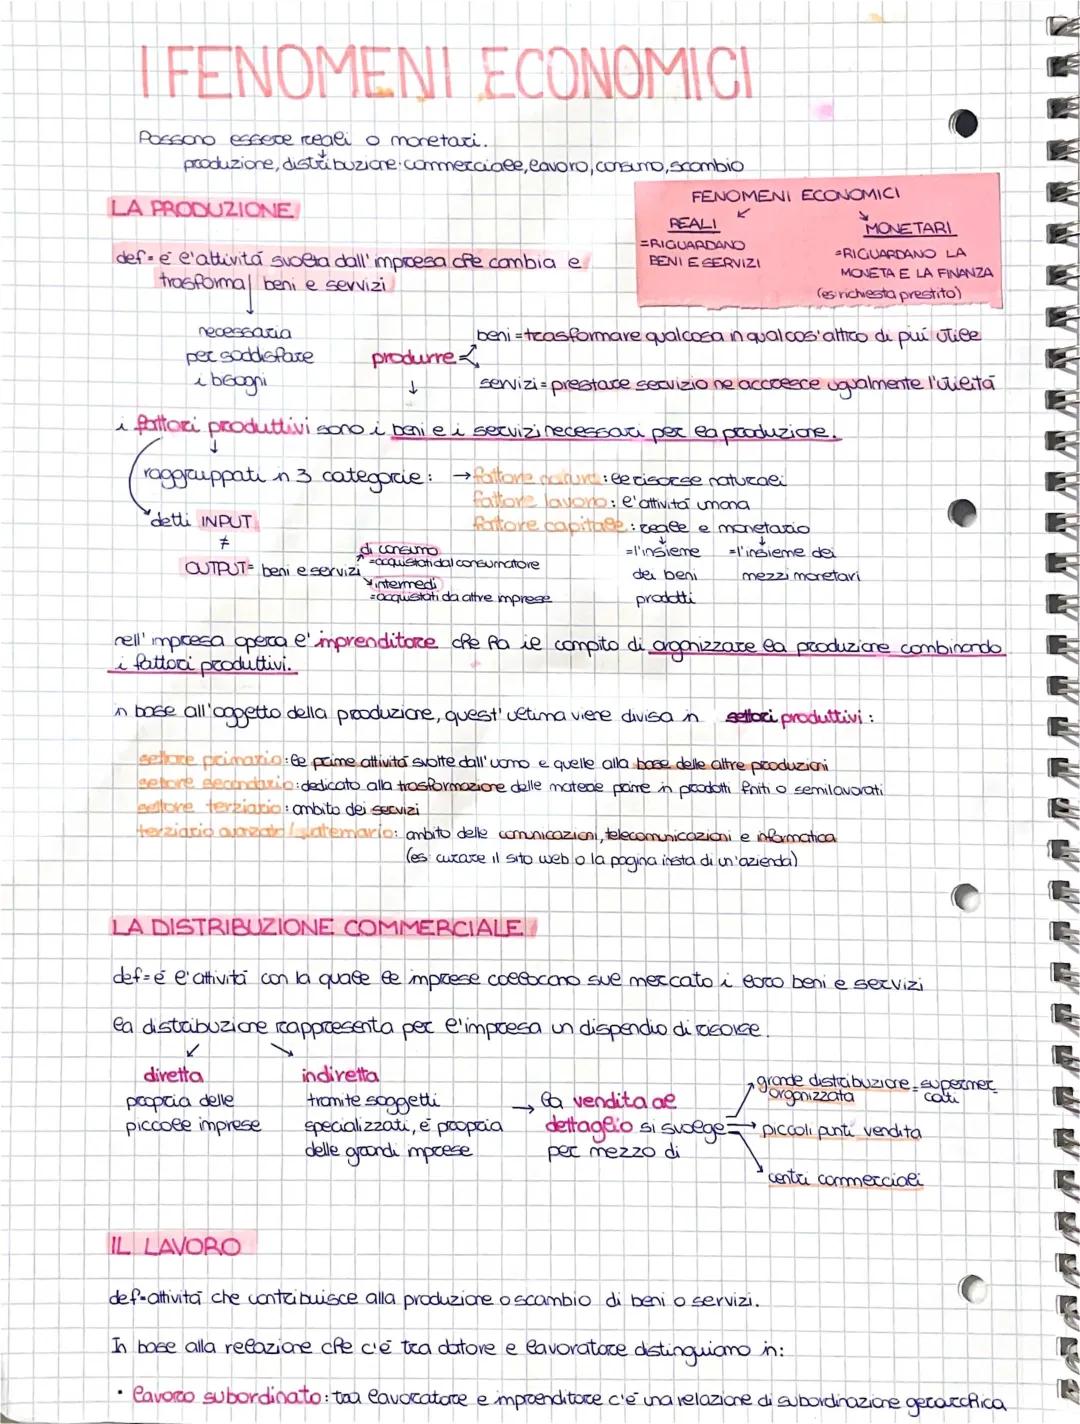 I FENOMENI ECONOMICI
Possono essere reali o monetari.
produzione, distribuzione commerciale, lavoro, consumo, scambio
FENOMENI ECONOMICI
REALI
=RIGUARDANO
BENI E SERVIZI
MONETARI
=RIGUARDANO LA
MONETA E LA FINANZA
(es richiesta prestito)
LA PRODUZIONE
def= é l'attivitá svolta dall'impresa che cambia e
trasforma beni e servizi
necessaria
per soddisfare
i bisogni
produrre
beni = trasformare qualcosa in qualcos'altro di piú utile
servizi = prestare servizio ne accresce ugualmente l'utilitá
i fattori produttivi sono i beni e i servizi necessari per la produzione.
raggruppati in 3 categorie: → fattore natura: le risorse naturali
fattore lavoro: l'attivitá umana
fattore capitale: reale e monetario
=l'insieme
dei beni
prodotti
=l'insieme dei
mezzi monetari
detti INPUT
≠
OUTPUT= beni e servizi
di consumo
=acquistati dal consumatore
intermedi
=acquistati da altre imprese
nell'impresa opera l'imprenditore che ha il compito di organizzare la produzione combinando
i fattori produttivi.
in base all'oggetto della produzione, quest'ultima viene divisa in settori produttivi:
settore primario: le prime attivitá svolte dall'uomo e quelle alla base delle altre produzioni
settore secondario: dedicato alla trasformazione delle materie prime in prodotti finiti o semilavorati
settore terziario: ambito dei servizi
terziario avanzato/quaternario: ambito delle comunicazioni, telecomunicazioni e informatica
(es: curare il sito web o la pagina insta di un'azienda)
LA DISTRIBUZIONE COMMERCIALE
def= é l'attivitá con la quale le imprese collocano sul mercato i loro beni e servizi
la distribuzione rappresenta per l'impresa un dispendio di risorse.
diretta
propria delle
piccole imprese
indiretta
tramite soggetti
specializzati, é propria
delle grandi imprese
→ la vendita al
dettaglio si svolge
per mezzo di
grande distribuzione = supermer
organizzata cati
piccoli punti vendita
centri commerciali
IL LAVORO
def=attivitá che contribuisce alla produzione o scambio di beni o servizi.
In base alla relazione che c'é tra datore e lavoratore distinguiamo in:
• lavoro subordinato: tra lavoratore e imprenditore c'é una relazione di subordinazione gerarchica